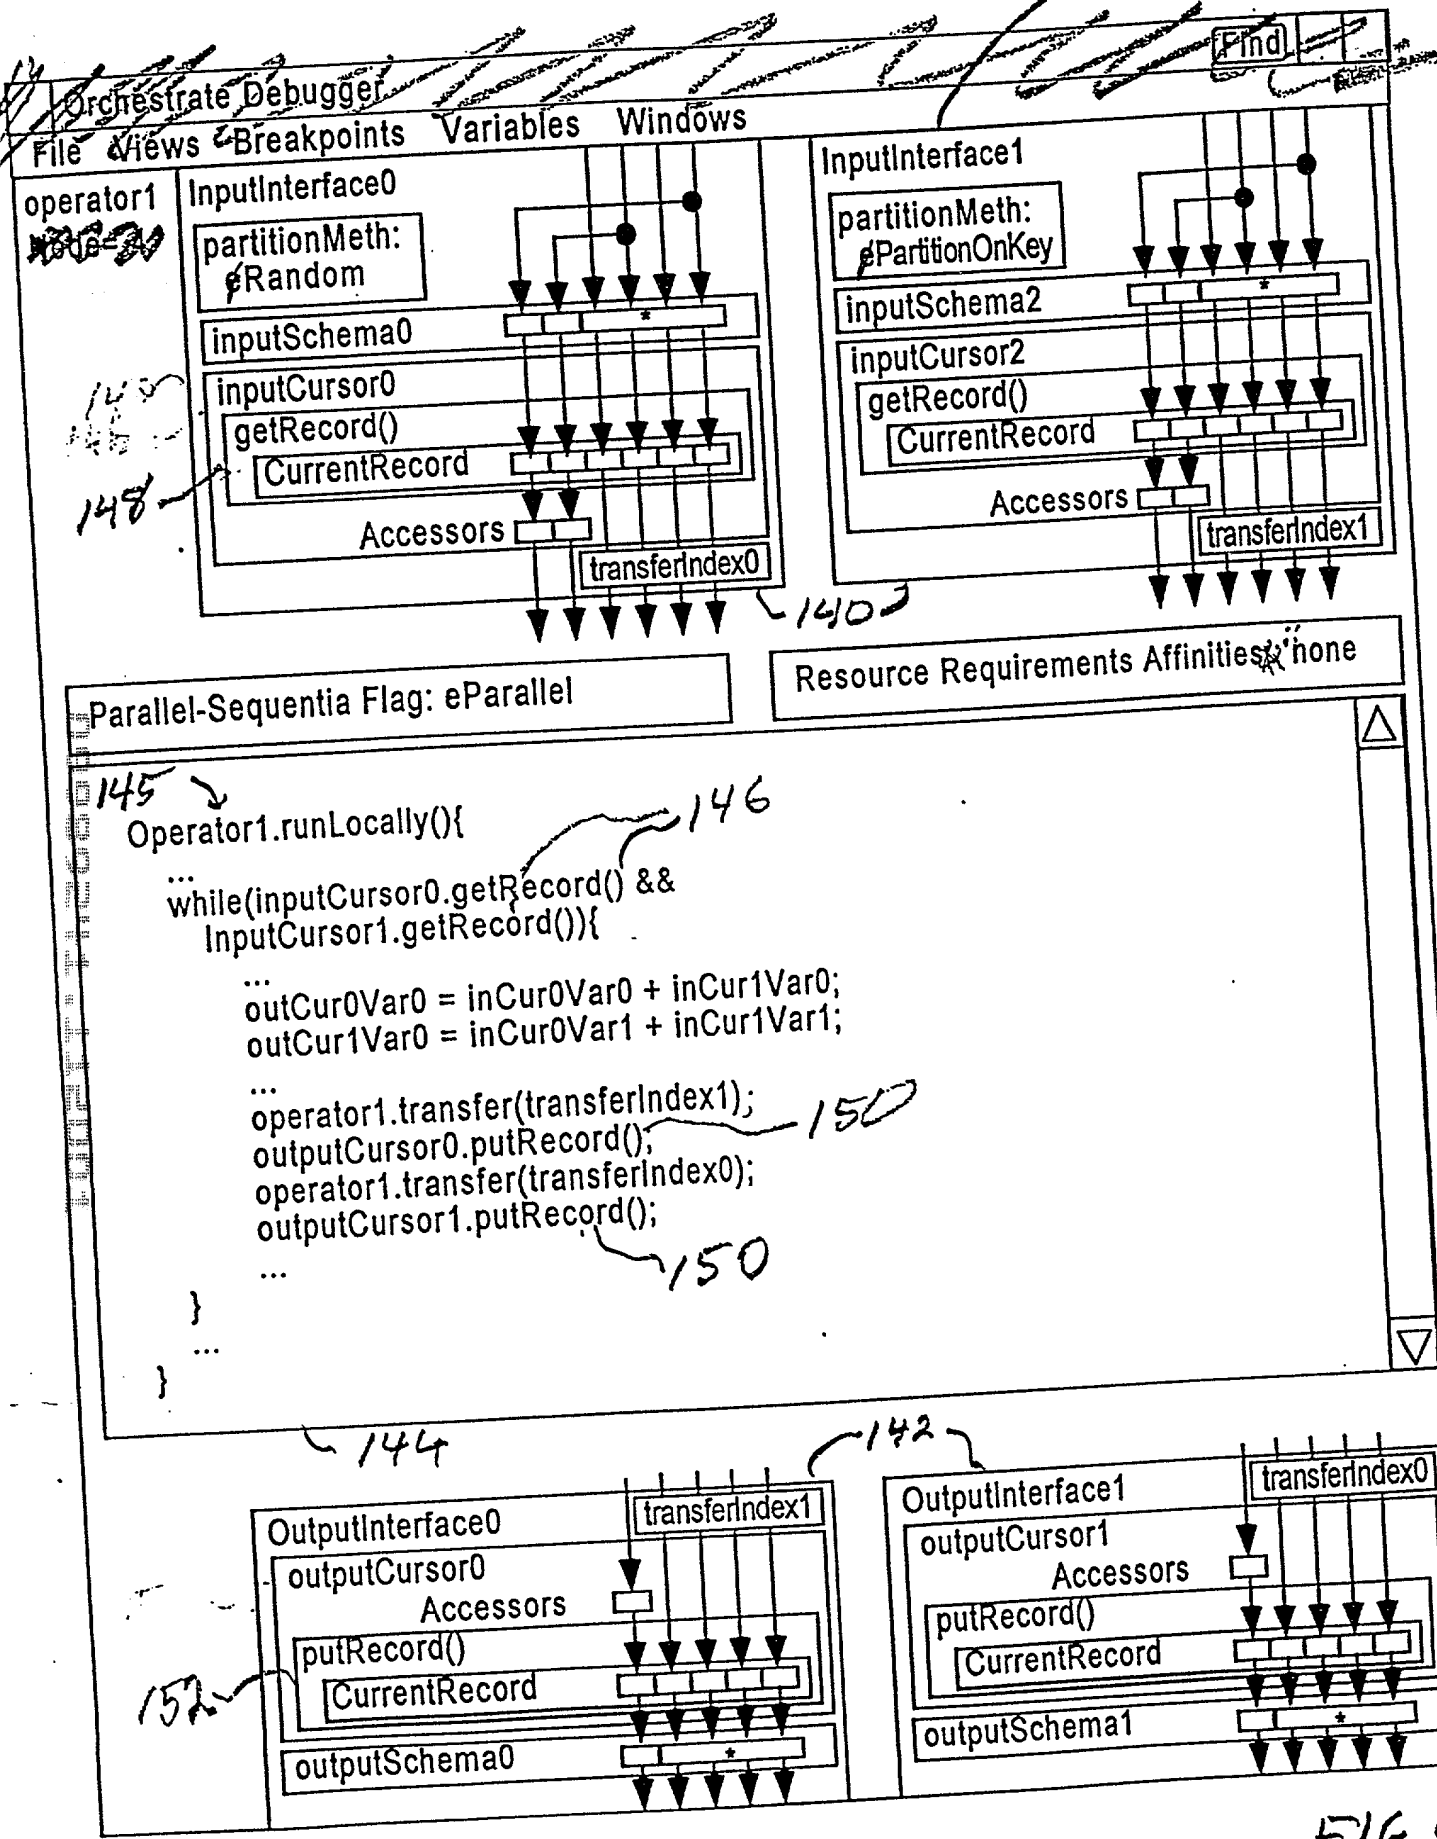 Find
Orchestrate Debugger
File Views Breakpoints Variables Windows
operator1
InputInterface0
partitionMeth:
eRandom
inputSchema0
*
inputCursor0
getRecord()
CurrentRecord
148
Accessors
transferIndex0
InputInterface1
partitionMeth:
ePartitionOnKey
inputSchema2
*
inputCursor2
getRecord()
CurrentRecord
Accessors
transferIndex1
140
Parallel-Sequentia Flag: eParallel
Resource Requirements Affinities: none
145
146
Operator1.runLocally(){
...
while(inputCursor0.getRecord() &&
InputCursor1.getRecord()){
...
outCur0Var0 = inCur0Var0 + inCur1Var0;
outCur1Var0 = inCur0Var1 + inCur1Var1;
...
operator1.transfer(transferIndex1);
150
outputCursor0.putRecord();
operator1.transfer(transferIndex0);
outputCursor1.putRecord();
150
...
}
...
}
144
142
OutputInterface0
transferIndex1
outputCursor0
Accessors
putRecord()
CurrentRecord
152
outputSchema0
*
OutputInterface1
transferIndex0
outputCursor1
Accessors
putRecord()
CurrentRecord
outputSchema1
*